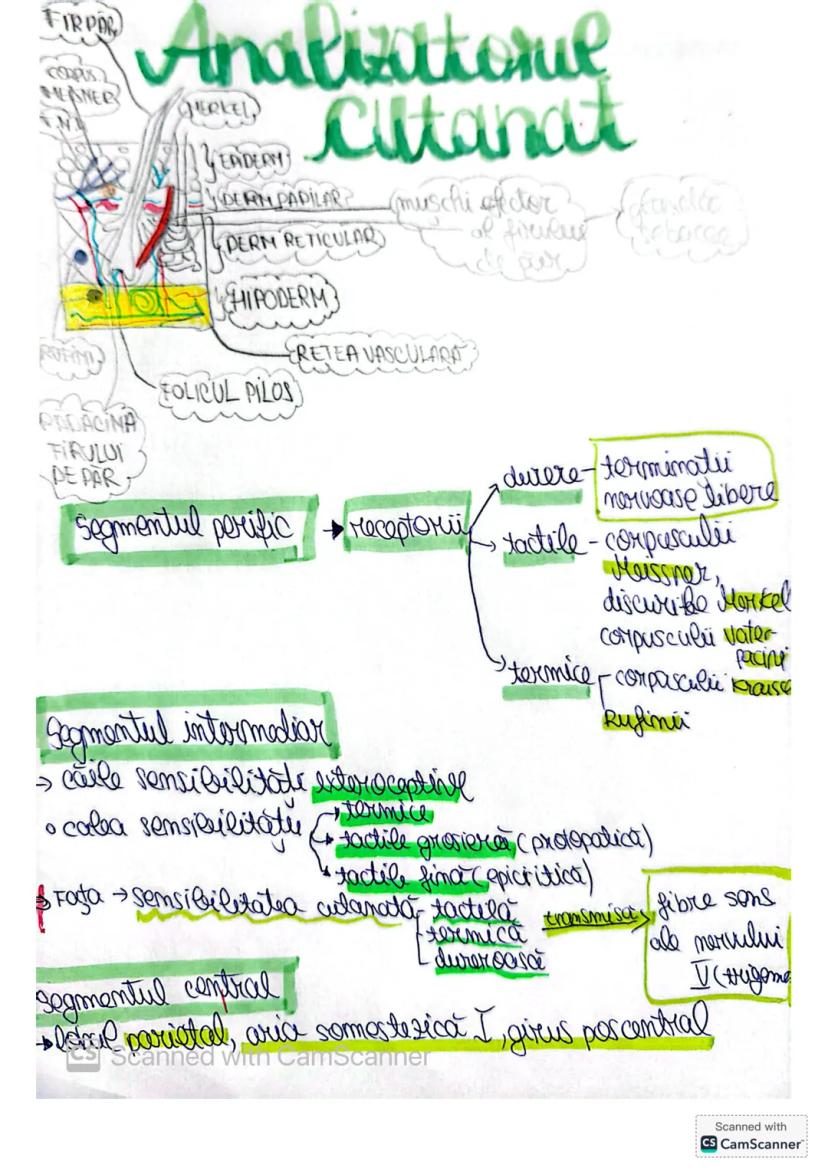 Analizatorul
cutanat
FIR PĂR
CORPUS.
MEISNER
T.N.L
MERKEL
EPIDERM
DERM PAPILAR
mușchi efector
al firului
de păr
glandă
sebacee
DERM RETICULAR
HIPODERM
RETEA VASCULARĂ
RUFINI
FOLICUL PILOS
RĂDĂCINA
FIRULUI
DE PĂR
Segmentul perific → receptorii
durere - terminatii
nervoase libere
tactile - corpusculii
Meissner,
discurile Merkel
corpusculii Vater-
pacini
termice corpusculii Krause
Rufinii
Segmentul intermediar
→ căile sensibilități exteroceptive
o calea sensibilității
termice
tactile grosieră (protopatică)
tactile fină (epicritică)
Fața → sensibilitatea cutanată tactilă transmisă
termică
dureroasă
fibre sens
ale nervului
V (trigeme
Segmentul central
→ lobul parietal, aria somestezică I, girus poscentral
CS Scanned with CamScanner
Scanned with
CS CamScanner